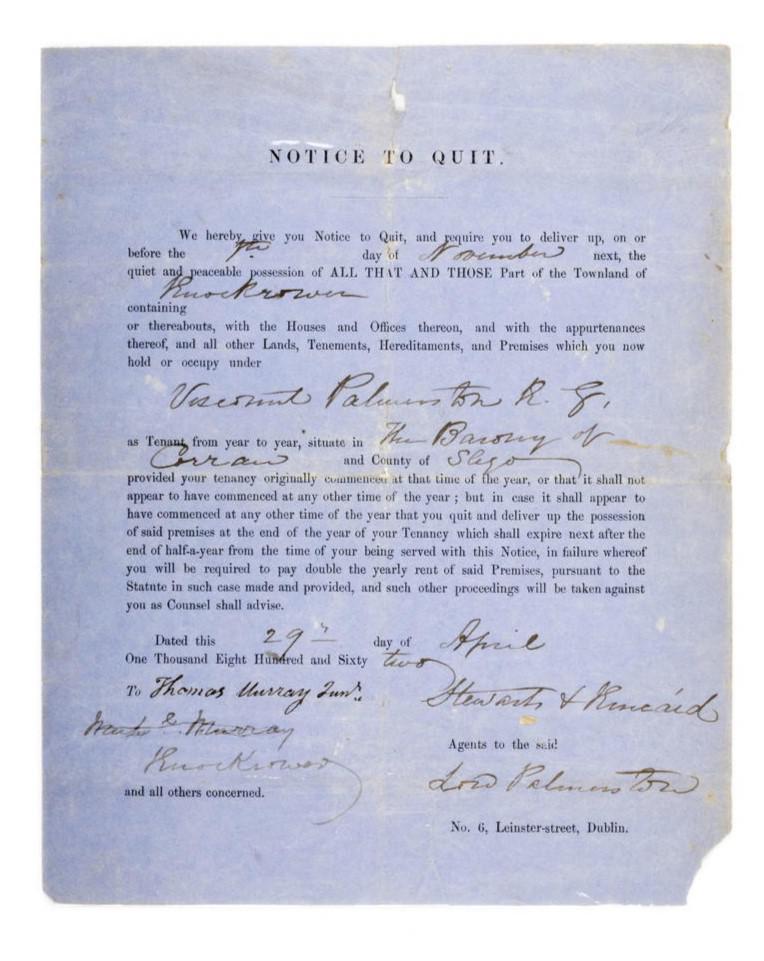 NOTICE TO QUIT.
We hereby give you Notice to Quit, and require you to deliver up, on or
before the 1st day of November next, the
quiet and peaceable possession of ALL THAT AND THOSE Part of the Townland of
Knockrower
containing
or thereabouts, with the Houses and Offices thereon, and with the appurtenances
thereof, and all other Lands, Tenements, Hereditaments, and Premises which you now
hold or occupy under
Viscount Palmerston K. G.
as Tenant from year to year, situate in The Barony of
Corran and County of Sligo
provided your tenancy originally commenced at that time of the year, or that it shall not
appear to have commenced at any other time of the year ; but in case it shall appear to
have commenced at any other time of the year that you quit and deliver up the possession
of said premises at the end of the year of your Tenancy which shall expire next after the
end of half-a-year from the time of your being served with this Notice, in failure whereof
you will be required to pay double the yearly rent of said Premises, pursuant to the
Statute in such case made and provided, and such other proceedings will be taken against
you as Counsel shall advise.
Dated this 29th day of April
One Thousand Eight Hundred and Sixty two
To Thomas Murray Junr. Stewarts & Kincaid
Murray
Agents to the said
Knockrower
Lord Palmerston
and all others concerned.
No. 6, Leinster-street, Dublin.